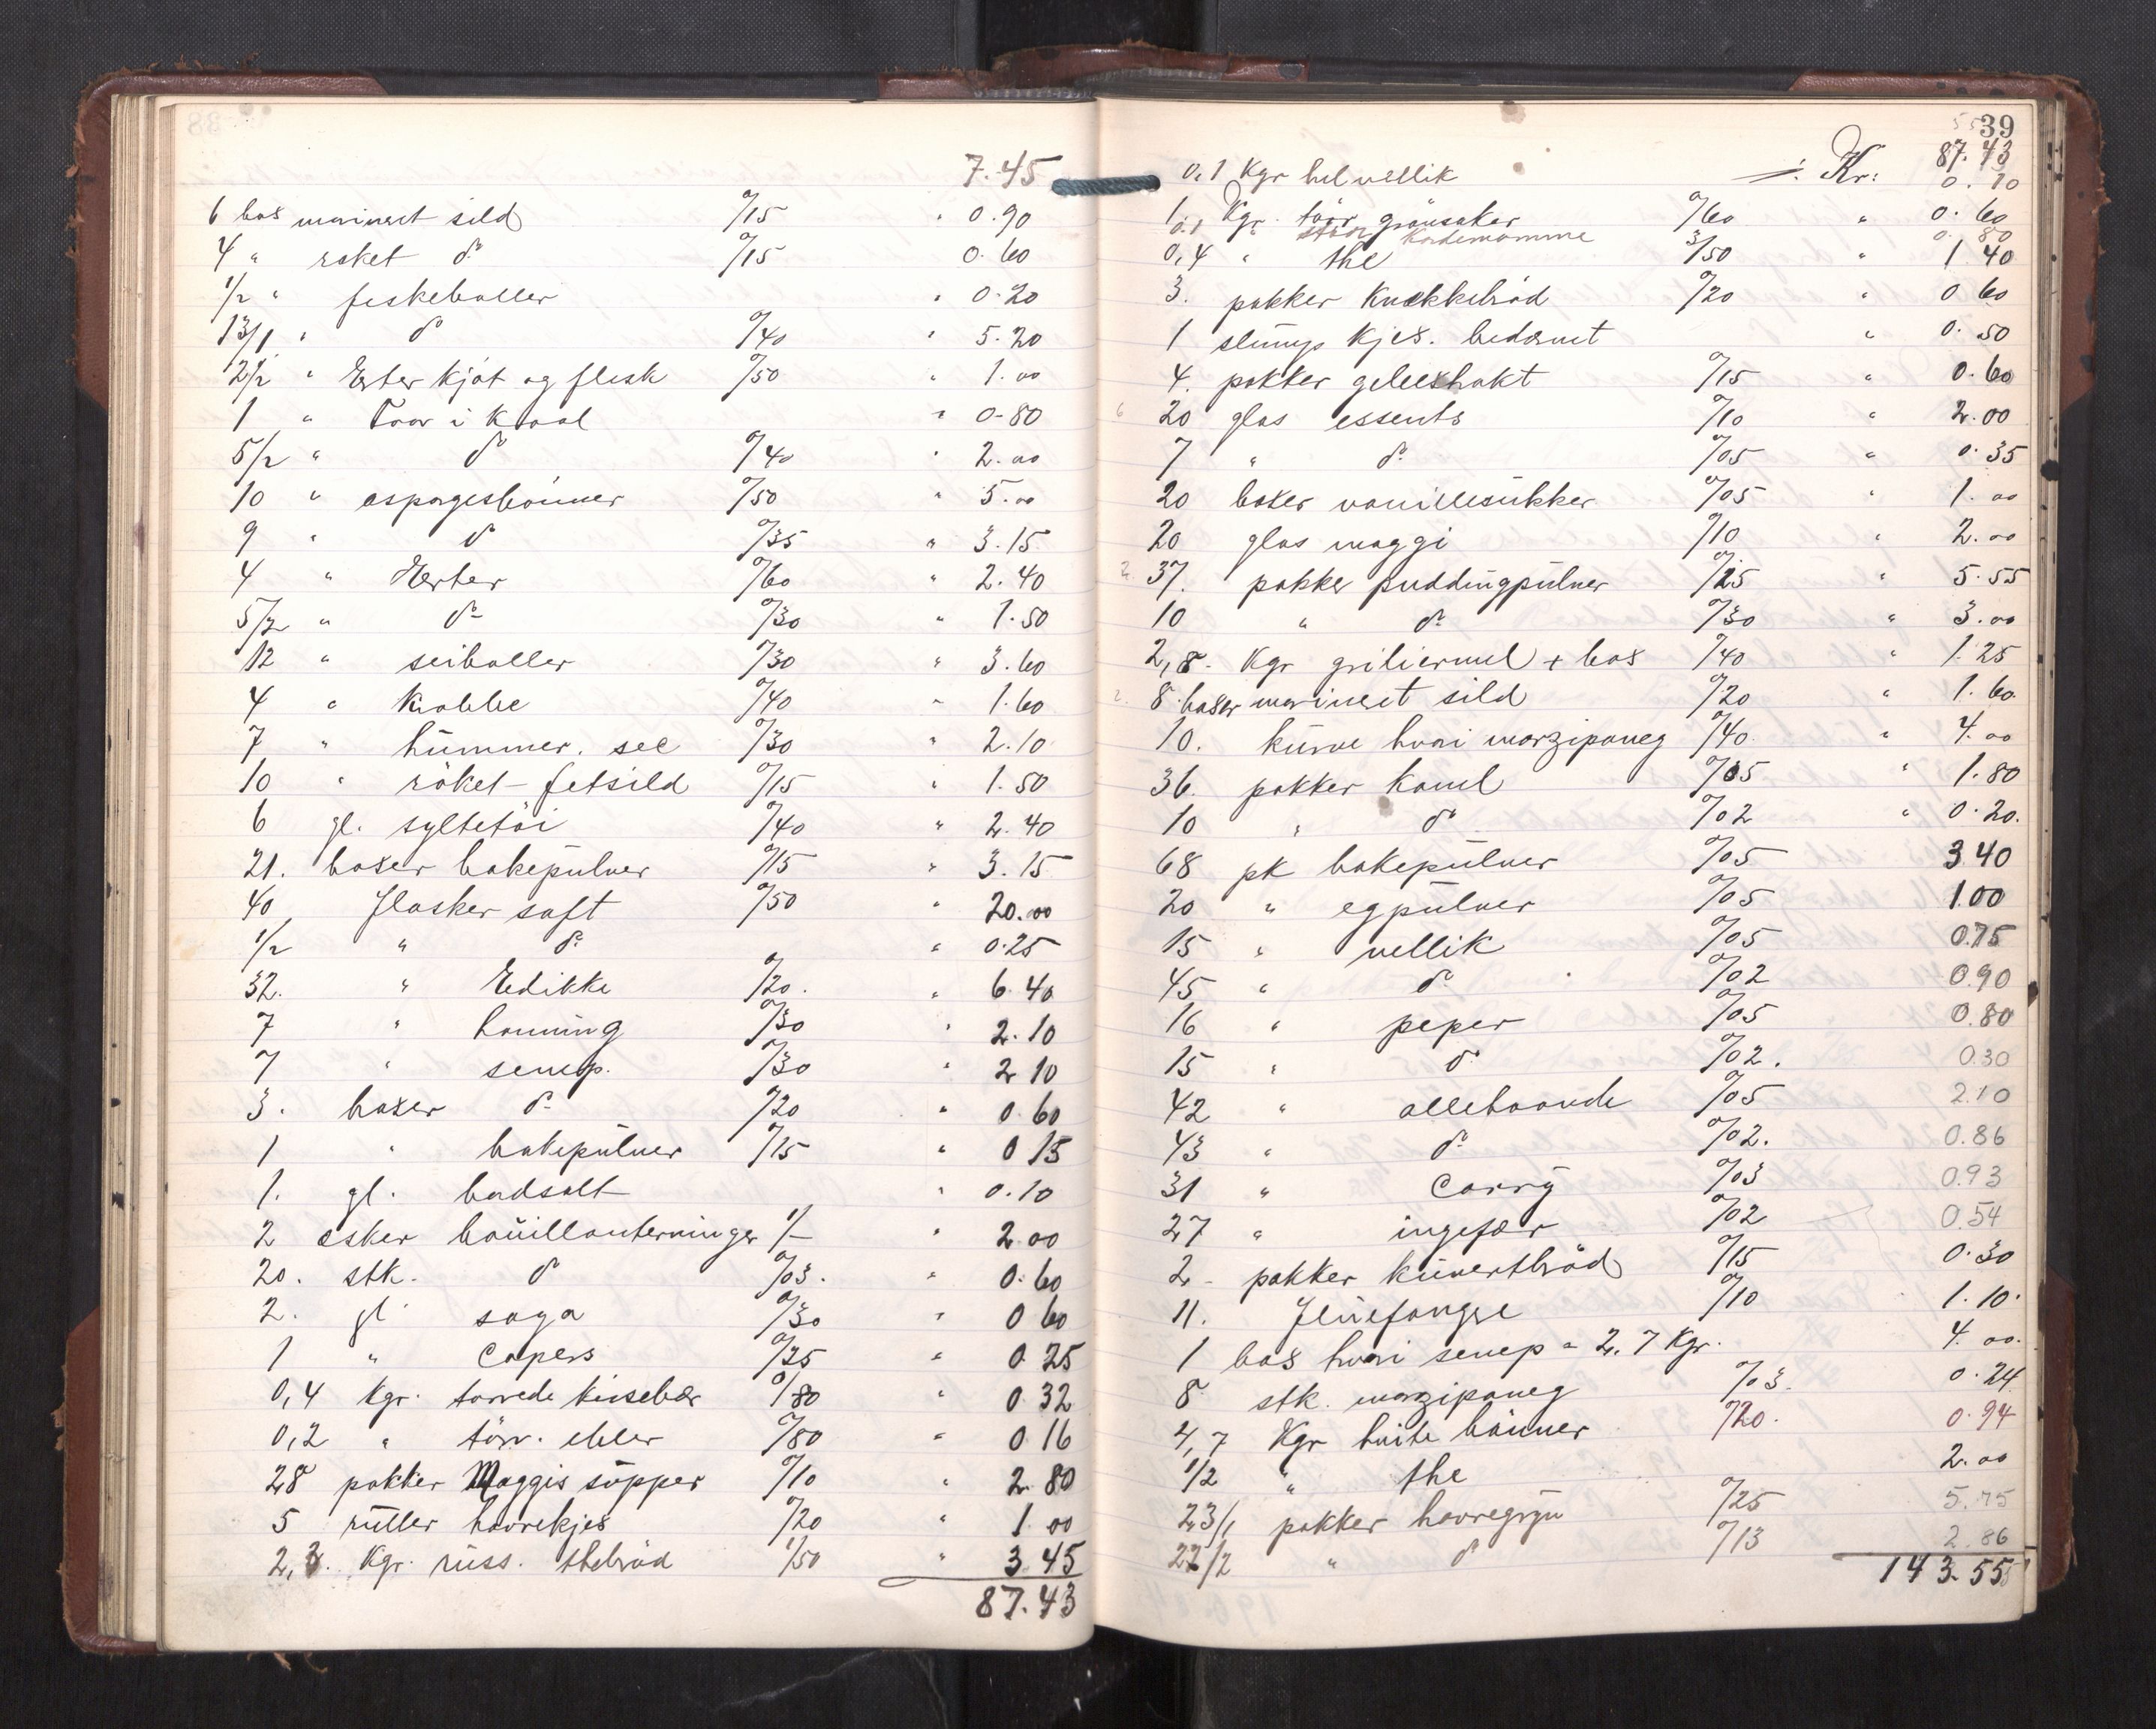 7.45
6 box marineret sild 0/15 " 0.90
4 " röket do 0/15 0.60
1/2 " fiskeboller " 0.20
13/1 " do 0/40 " 5.20
2/2 " Erter kjöt og flesk 0/50 " 1.00
1 " Faar i Kaal " 0.80
5/2 " do 0/40 " 2.00
10 " aspargesbönner 0/50 " 5.00
9 " do 0/35 " 3.15
4 " Herter 0/60 " 2.40
5/2 " do 0/30 " 1.50
12 " seiboller 0/30 " 3.60
4 " Krabbe 0/40 " 1.60
7 " hummer. sec 0/30 " 2.10
10 " röket-fetsild 0/15 " 1.50
6 gl. syltetöi 0/40 " 2.40
21. boxer bakepulver 0/15 " 3.15
40 flasker saft 0/50 " 20.00
1/2 " do " 0.25
32. " Edikke 0/20. " 6.40
7 " honning 0/30 " 2.10
7 " senep. 0/30 " 2 10
3. boxer do 0/20 " 0.60
1 " bakepulver 0/15 " 0 15
1. gl. badsalt " 0.10
2 esker bouillonterninger 1/- " 2 00
20. stk. do 0/03. " 0.60
2. gl soya 0/30 " 0 60
1 " Capers 0/25 " 0.25
0,4 kgr. torrede kirsebær 0/80 " 0 32
0,2 " törr. ebler 0/80 " 0 16
28 pakker Maggis supper 0/10 " 2 80
5 ruller havrekjes 0/20 " 1 00
2,3. Kgr. russ. thebröd 1/50 " 3.45
87.43
39
Kr: 87.43
0,1 Kgr hel nellik 0.10
1 Kgr. törr grönsaker 0/60 " 0.60
0.1 " stöt Kardemomme 0.80
0,4 " the 3/50 " 1 40
3. pakker Knekkebröd 0/20 " 0 60
1 slump kjes. bedærvet " 0.50
4. pakker geleextrakt 0/15 " 0.60
20 glas essents 0/10 " 2.00
7 " do 0/05 " 0.35
20 boxer vanillesukker 0/05 " 1.00
20 glas maggi 0/10 " 2.00
37. pakker puddingpulver 0/15 " 5.55
10 " do 0/30 " 3.00
2,8. Kgr griliermel + box 0/40 " 1.25
8 boxer marineret sild 0/20 " 1.60
10. kurve hvori marzipaneg 0/40 " 4.00
36. pakker Kanel 0/05 " 1.80
10 " do 0/02 " 0.20.
68 pk bakepulver 0/05 3 40
20 " egpulver 0/05 1.00
15 " nellik 0/05 0.75
45 " do 0/02 0.90
16 " peper 0/05 0.80
15 " do 0/02. 0.30
42 " allehaande 0/05 2.10
43 " do 0/02. 0.86
31 " Carry 0/03 0.93
27 " ingefær 0/02 0.54
2 - pakker kuvertbröd 0/15 0.30
11. fluefangre 0/10 1.10.
1 box hvori senep = 2,7 Kgr. 4.00.
8 stk. marzipaneg 0/03. 0.24
4,7 Kgr hvite bönner 0/20. 0.94
1/2 " the 2.00
23/1 pakker havregryn 0/25 5.75
22/2 " do 0/13 2.86
143.55